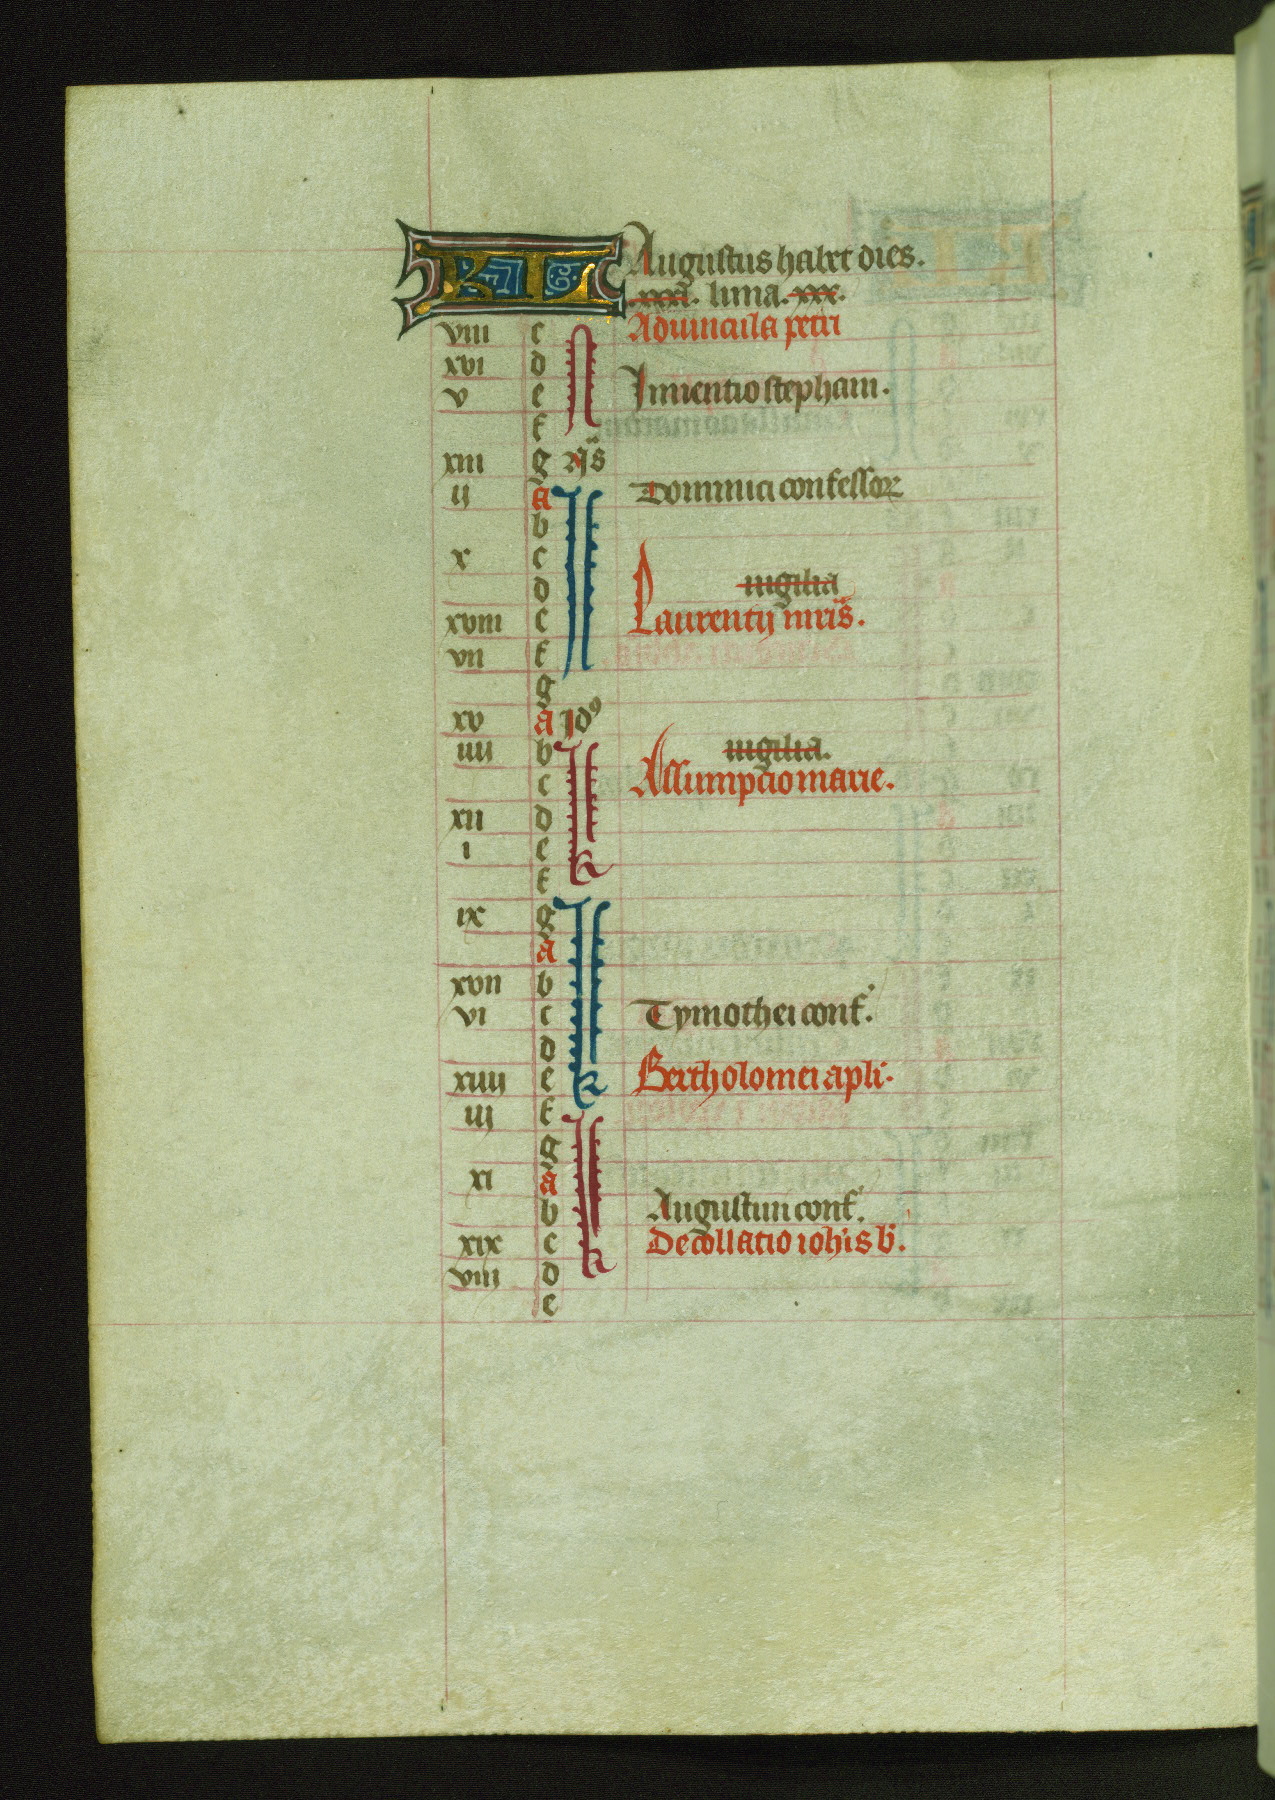 KL Augustus habet dies.
xxxi. luna. xxx.
viii c Aduincula petri
xvi d
v e Inuentio stephani.
f
xiii g No̅s
ii a Dominici confessor
b
x c
d uigilia
xviii e Laurentij mris.
vii f
g
xv a Id9
iiii b uigilia.
c Assumpcio marie.
xii d
i e k
f
ix g
a
xvii b
vi c Tymothei conf.
d
xiiii e k Bertholomei apli.
iij f
g
xi a
b Augustini conf.
xix c k Decollatio ioh'is b.
viii d
e